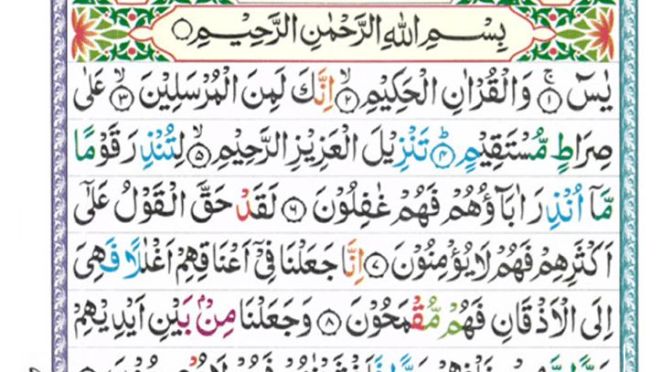 بِسْمِ اللهِ الرَّحْمٰنِ الرَّحِيْمِ
يٰسٓ ۝۱ وَالْقُرْاٰنِ الْحَكِيْمِ ۝۲ اِنَّكَ لَمِنَ الْمُرْسَلِيْنَ ۝۳ عَلٰى
صِرَاطٍ مُّسْتَقِيْمٍ ۝۴ تَنْزِيْلَ الْعَزِيْزِ الرَّحِيْمِ ۝۵ لِتُنْذِرَ قَوْمًا
مَّاۤ اُنْذِرَ اٰبَآؤُهُمْ فَهُمْ غٰفِلُوْنَ ۝۶ لَقَدْ حَقَّ الْقَوْلُ عَلٰۤى
اَكْثَرِهِمْ فَهُمْ لَا يُؤْمِنُوْنَ ۝۷ اِنَّا جَعَلْنَا فِيْۤ اَعْنَاقِهِمْ اَغْلٰلًا فَهِىَ
اِلَى الْاَذْقَانِ فَهُمْ مُّقْمَحُوْنَ ۝۸ وَجَعَلْنَا مِنْۢ بَيْنِ اَيْدِيْهِمْ